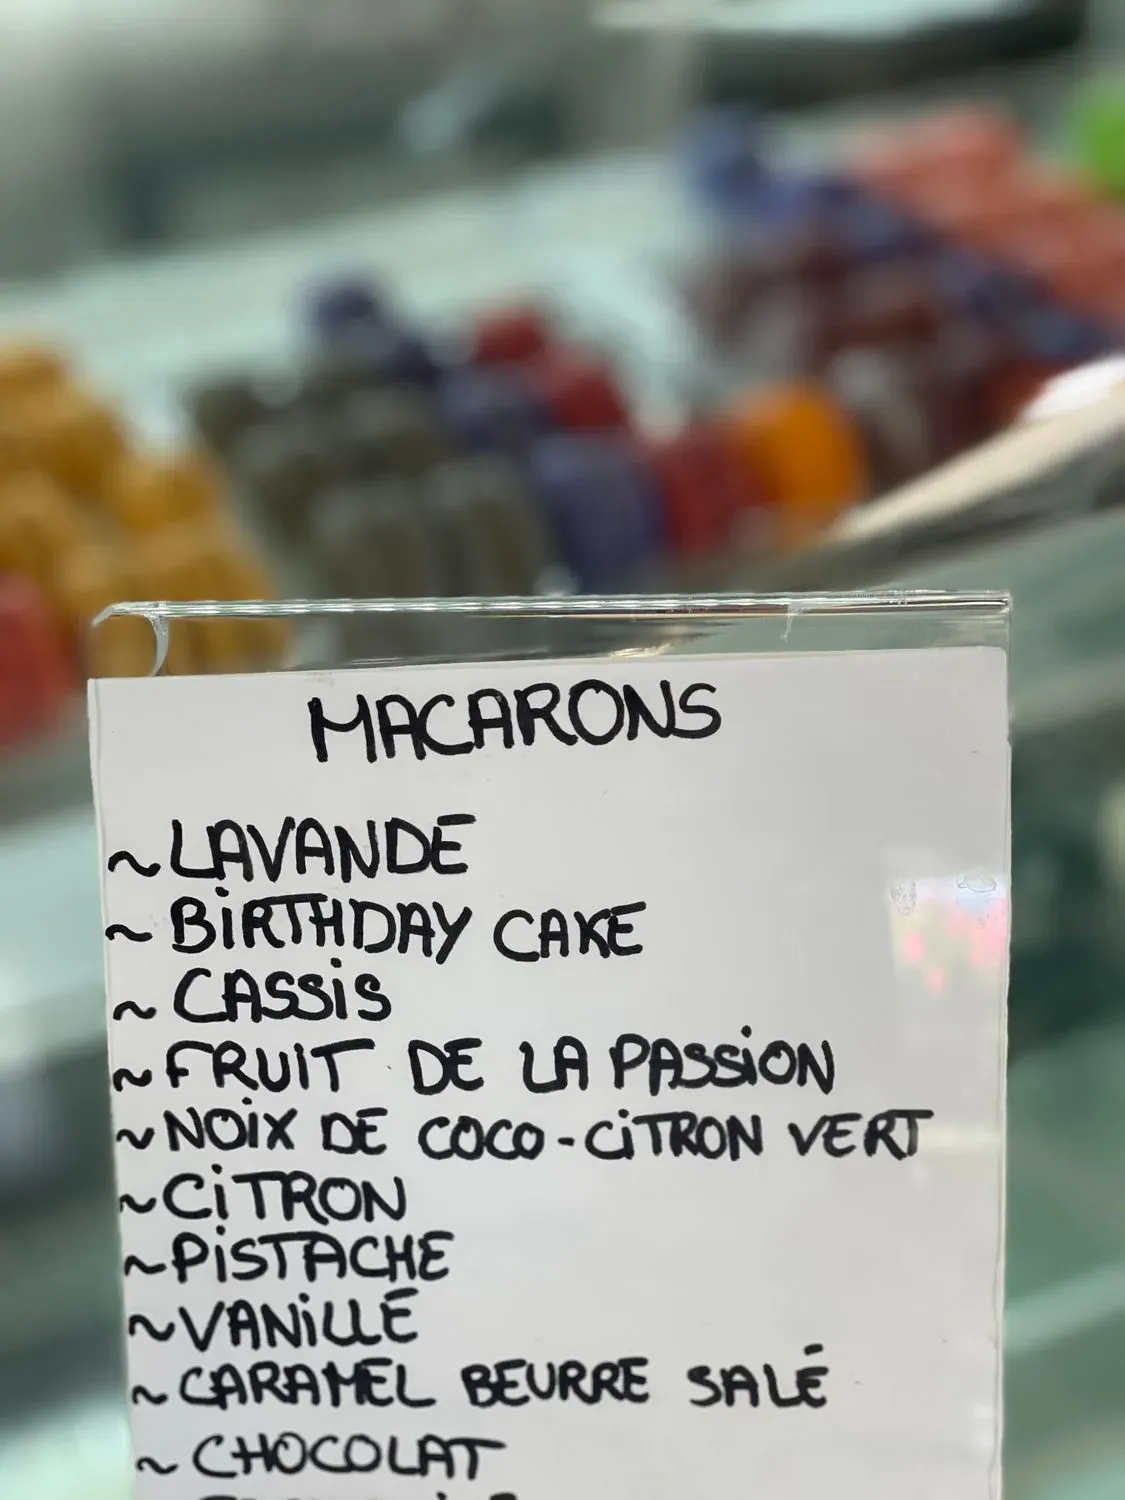 MACARONS
~ LAVANDE
~ BiRTHDAY CAKE
~ CASSiS
~ FRUiT DE LA PASSiON
~ NOiX DE COCO-CiTRON VERT
~ CiTRON
~ PiSTACHE
~ VANiLLE
~ CARAMEL BEURRE SALÉ
~ CHOCOLAT